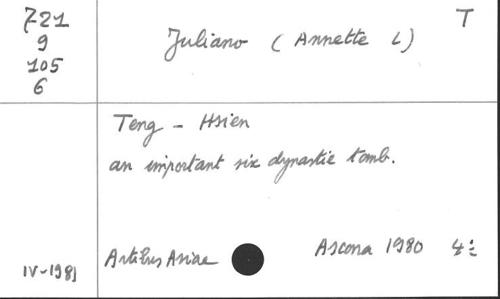 721
9
105
6
Juliano (Annette L)
T
Teng - Hsien
an important six dynastie tomb.
Artibus Asiae
Ascona 1980 4º
IV-1981